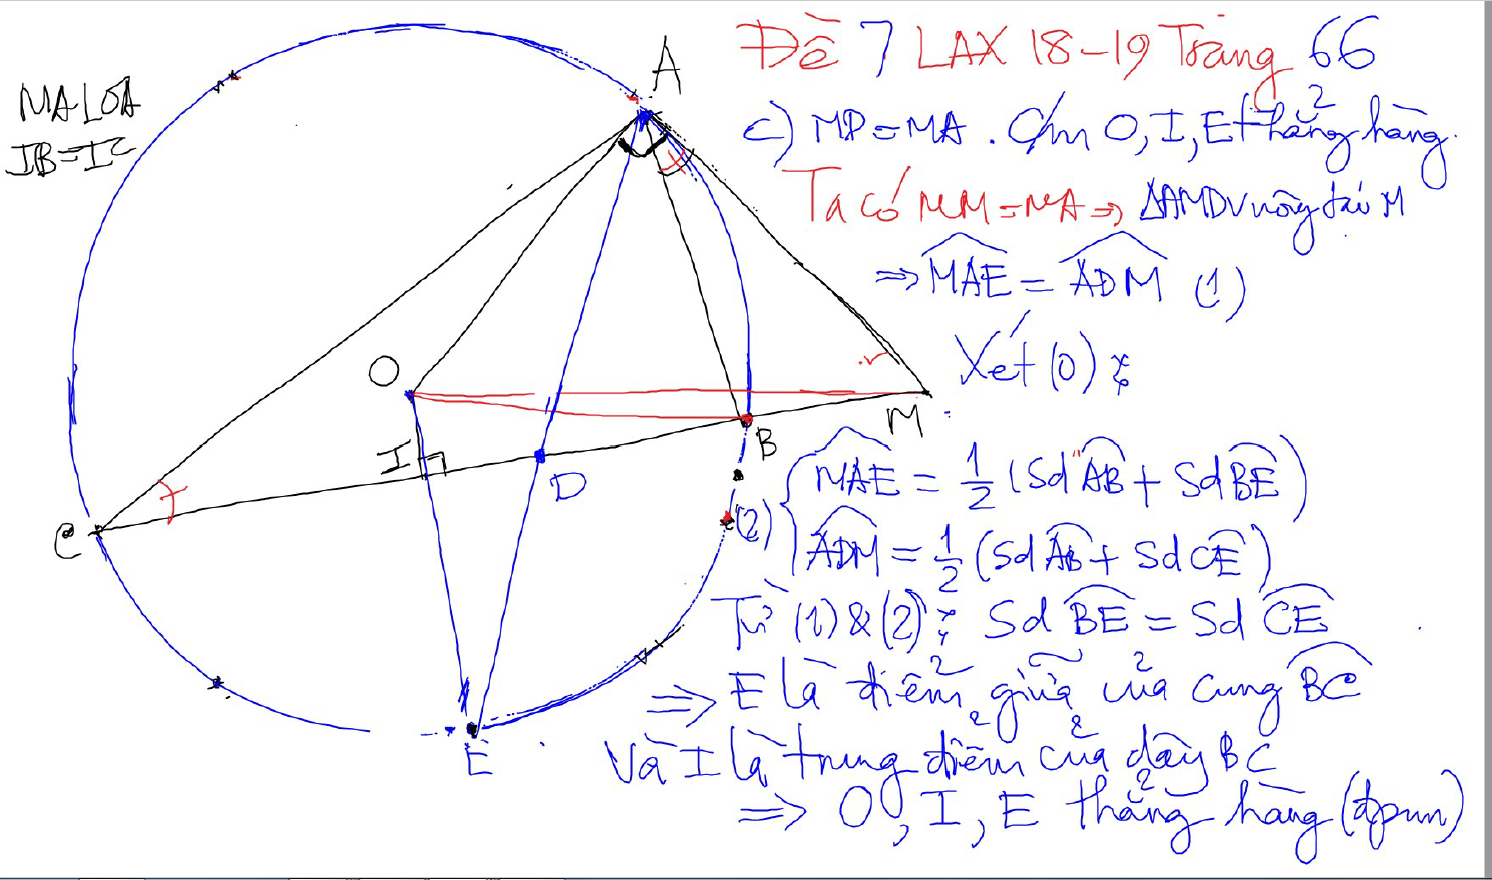 Đề 7 LAX 18-19 Trảng 66
MA⊥OA
IB=IC
c) MD=MA. C/m O, I, E thẳng hàng.
Ta có MM=MA => ΔAMD vuông tại M
=> MAE = ADM (1)
Xét (O):
MAE = 1/2 (Sđ AB + Sđ BE)
(2)
ADM = 1/2 (Sđ AB + Sđ CE)
Từ (1) & (2): Sđ BE = Sđ CE
=> E là điểm giữa của cung BC
Và I là trung điểm của dây BC
=> O, I, E thẳng hàng (đpcm)
A
O
M
I
B
D
C
E